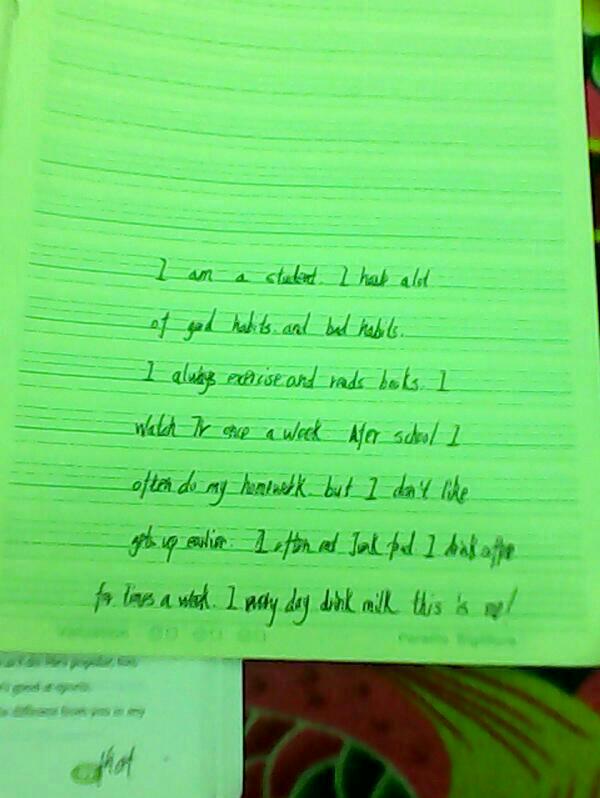 I am a student. I have alot
of good habits. and bad habits.
I always exercise and reads books. I
watch TV once a week. After school I
often do my homework. but I don't like
gets up earlier. I often eat Junk food I drink coffee
for times a week. I every day drink milk this is me!
Valuation
Parents Signature
good at sports.
different from you in any
that